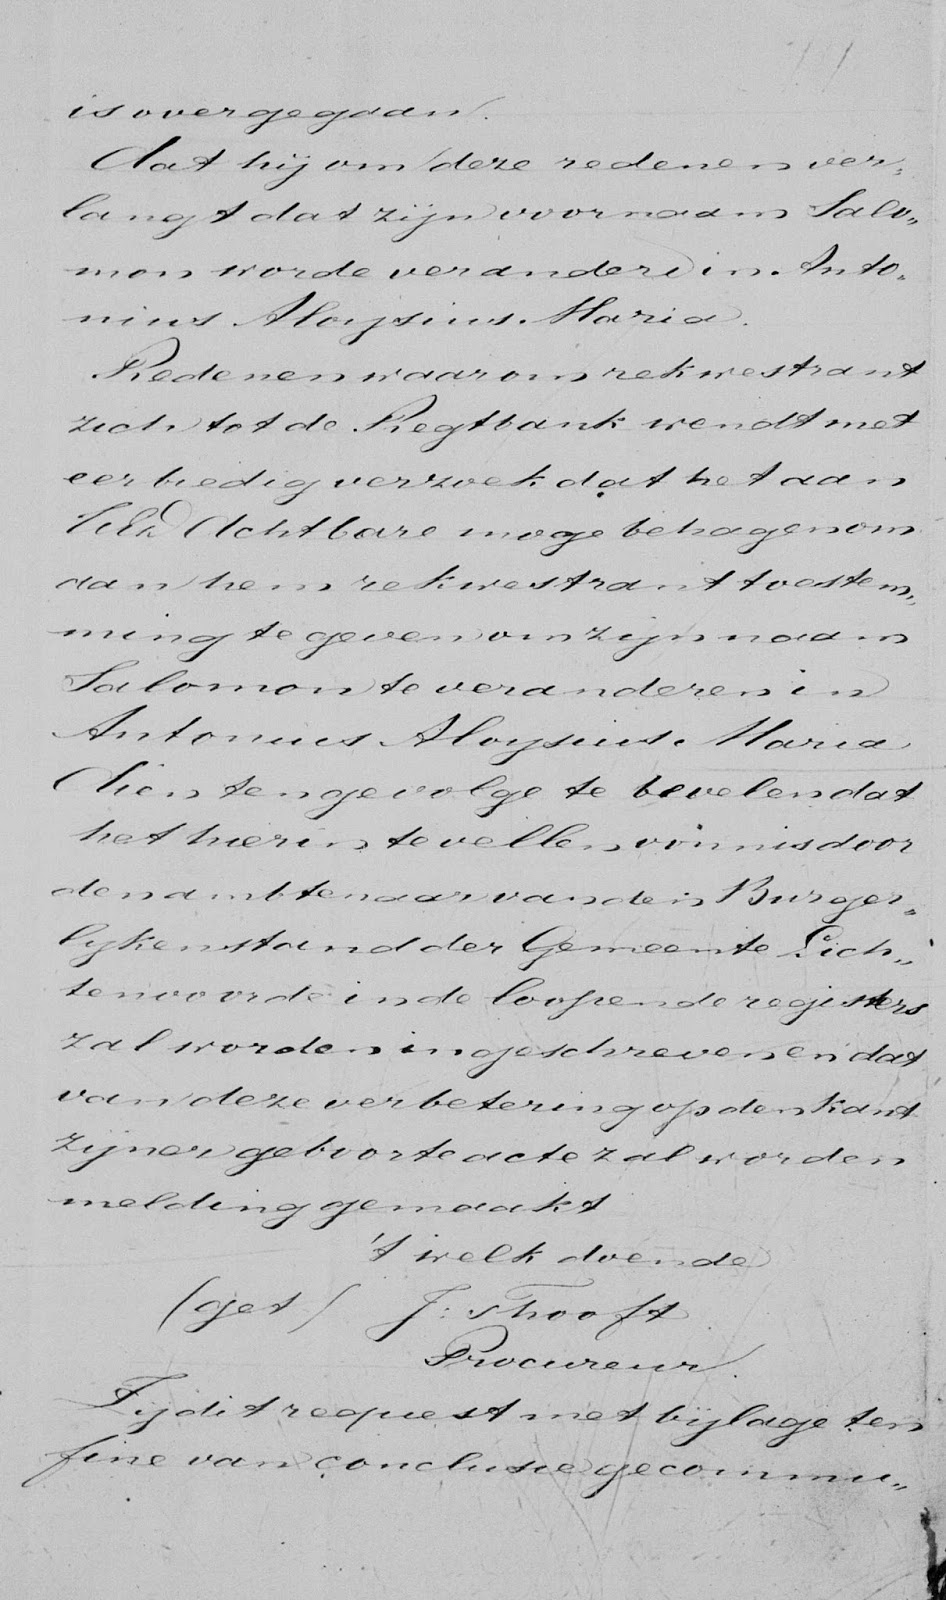 is overgegaan.
Dat hij om deze redenen ver„
langt dat zijn voornaam Salo„
mon worde veranderd in Anto„
nius Aloysius Maria.
Redenen waarom rekwestrant
zich tot de Regtbank wendt met
eerbiedig verzoek dat het aan
UEd Achtbare moge behagen om
aan hem rekwestrant toestem„
ming te geven om zijn naam
Salomon te veranderen in
Antonius Aloysius Maria
Dientengevolge te bevelen dat
het hierin te vellen vonnis door
den ambtenaar van den Burger„
lijken stand der Gemeente Lich„
tenvoorde in de loopende registers
zal worden ingeschreven en dat
van deze verbetering op den kant
zijner geboorte acte zal worden
melding gemaakt
't welk doende
(get) J: Thooft
Procureur.
Zij dit request met bijlage ten
fine van conclusie gecommu„